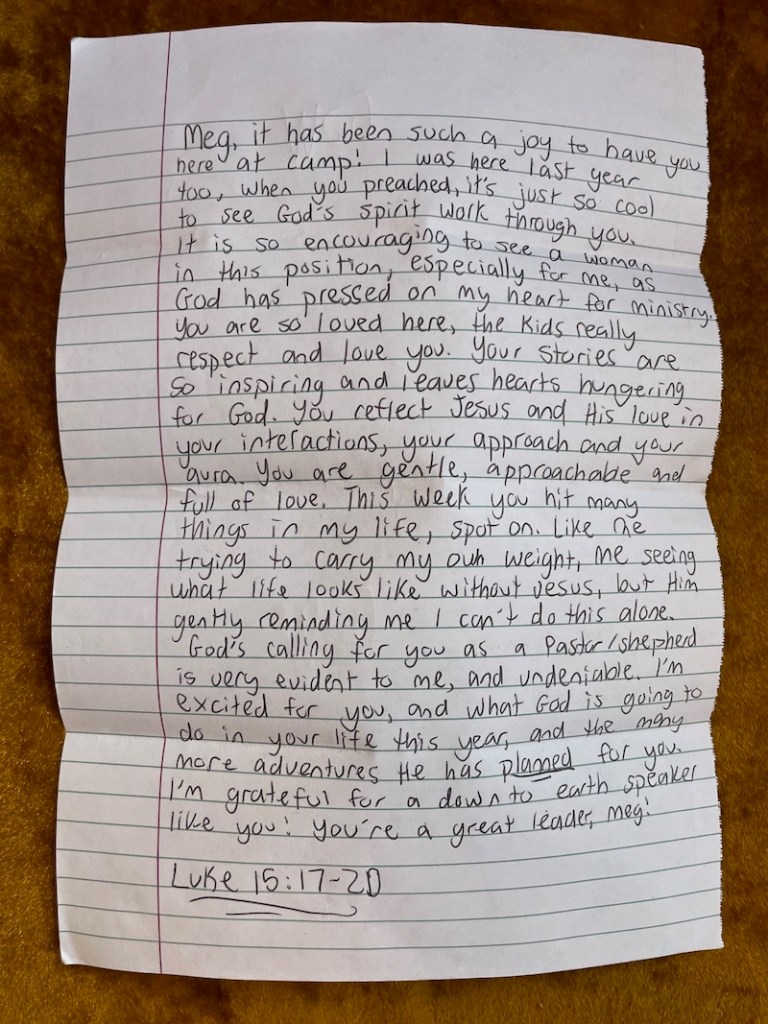 Meg, it has been such a joy to have you
here at camp! I was here last year
too, when you preached, it's just so cool
to see God's spirit work through you.
It is so encouraging to see a woman
in this position, especially for me, as
God has pressed on my heart for ministry.
You are so loved here, the kids really
respect and love you. Your stories are
so inspiring and leaves hearts hungering
for God. You reflect Jesus and His love in
your interactions, your approach and your
aura. You are gentle, approachable and
full of love. This week you hit many
things in my life, spot on. Like me
trying to carry my own weight, me seeing
what life looks like without Jesus, but Him
gently reminding me I can't do this alone.
God's calling for you as a Pastor/shepherd
is very evident to me, and undeniable. I'm
excited for you, and what God is going to
do in your life this year, and the many
more adventures He has planned for you.
I'm grateful for a down to earth speaker
like you! You're a great leader, Meg!
Luke 15:17-20